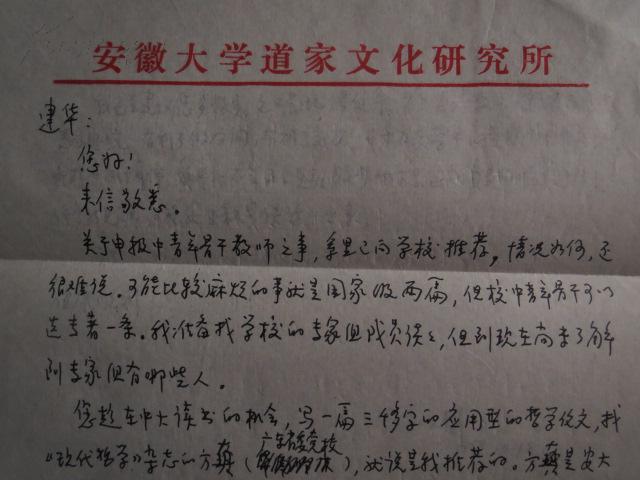 安徽大学道家文化研究所
建华：
您好！
来信敬悉。
关于申报中青年骨干教师之事，系里已向学校推荐，情况如何，还
很难说。可能比较麻烦的事就是国家级两篇，但校中青年骨干可以
选专著一条。我准备找学校的专家组成员谈谈，但到现在尚未了解
到专家组有哪些人。
您趁在中大读书的机会，写一篇三千多字的应用型的哲学论文，找
《现代哲学》杂志的方真（广东省委党校），就说是我推荐的。方真是安大